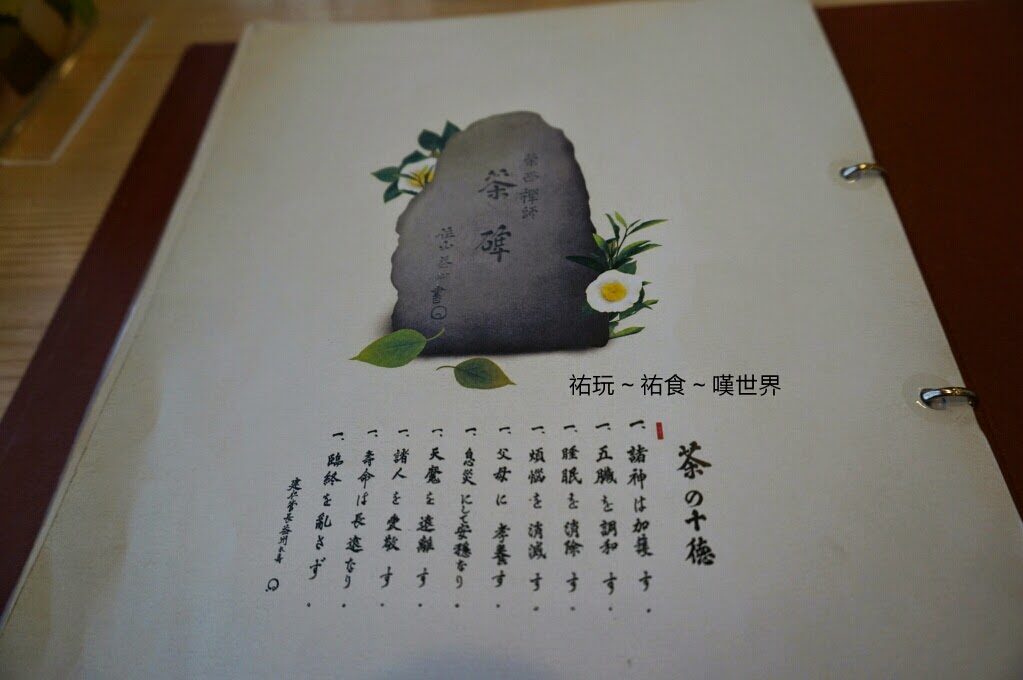 栄西禅師
茶碑
祐玩 ~ 祐食 ~ 嘆世界
茶の十徳
一、諸神は加護す。
一、五臓を調和す。
一、睡眠を消除す。
一、煩悩を消滅す。
一、父母に孝養す。
一、息災にして安穏なり。
一、天魔を遠離す。
一、諸人を愛敬す。
一、寿命は長遠なり。
一、臨終を乱さず。